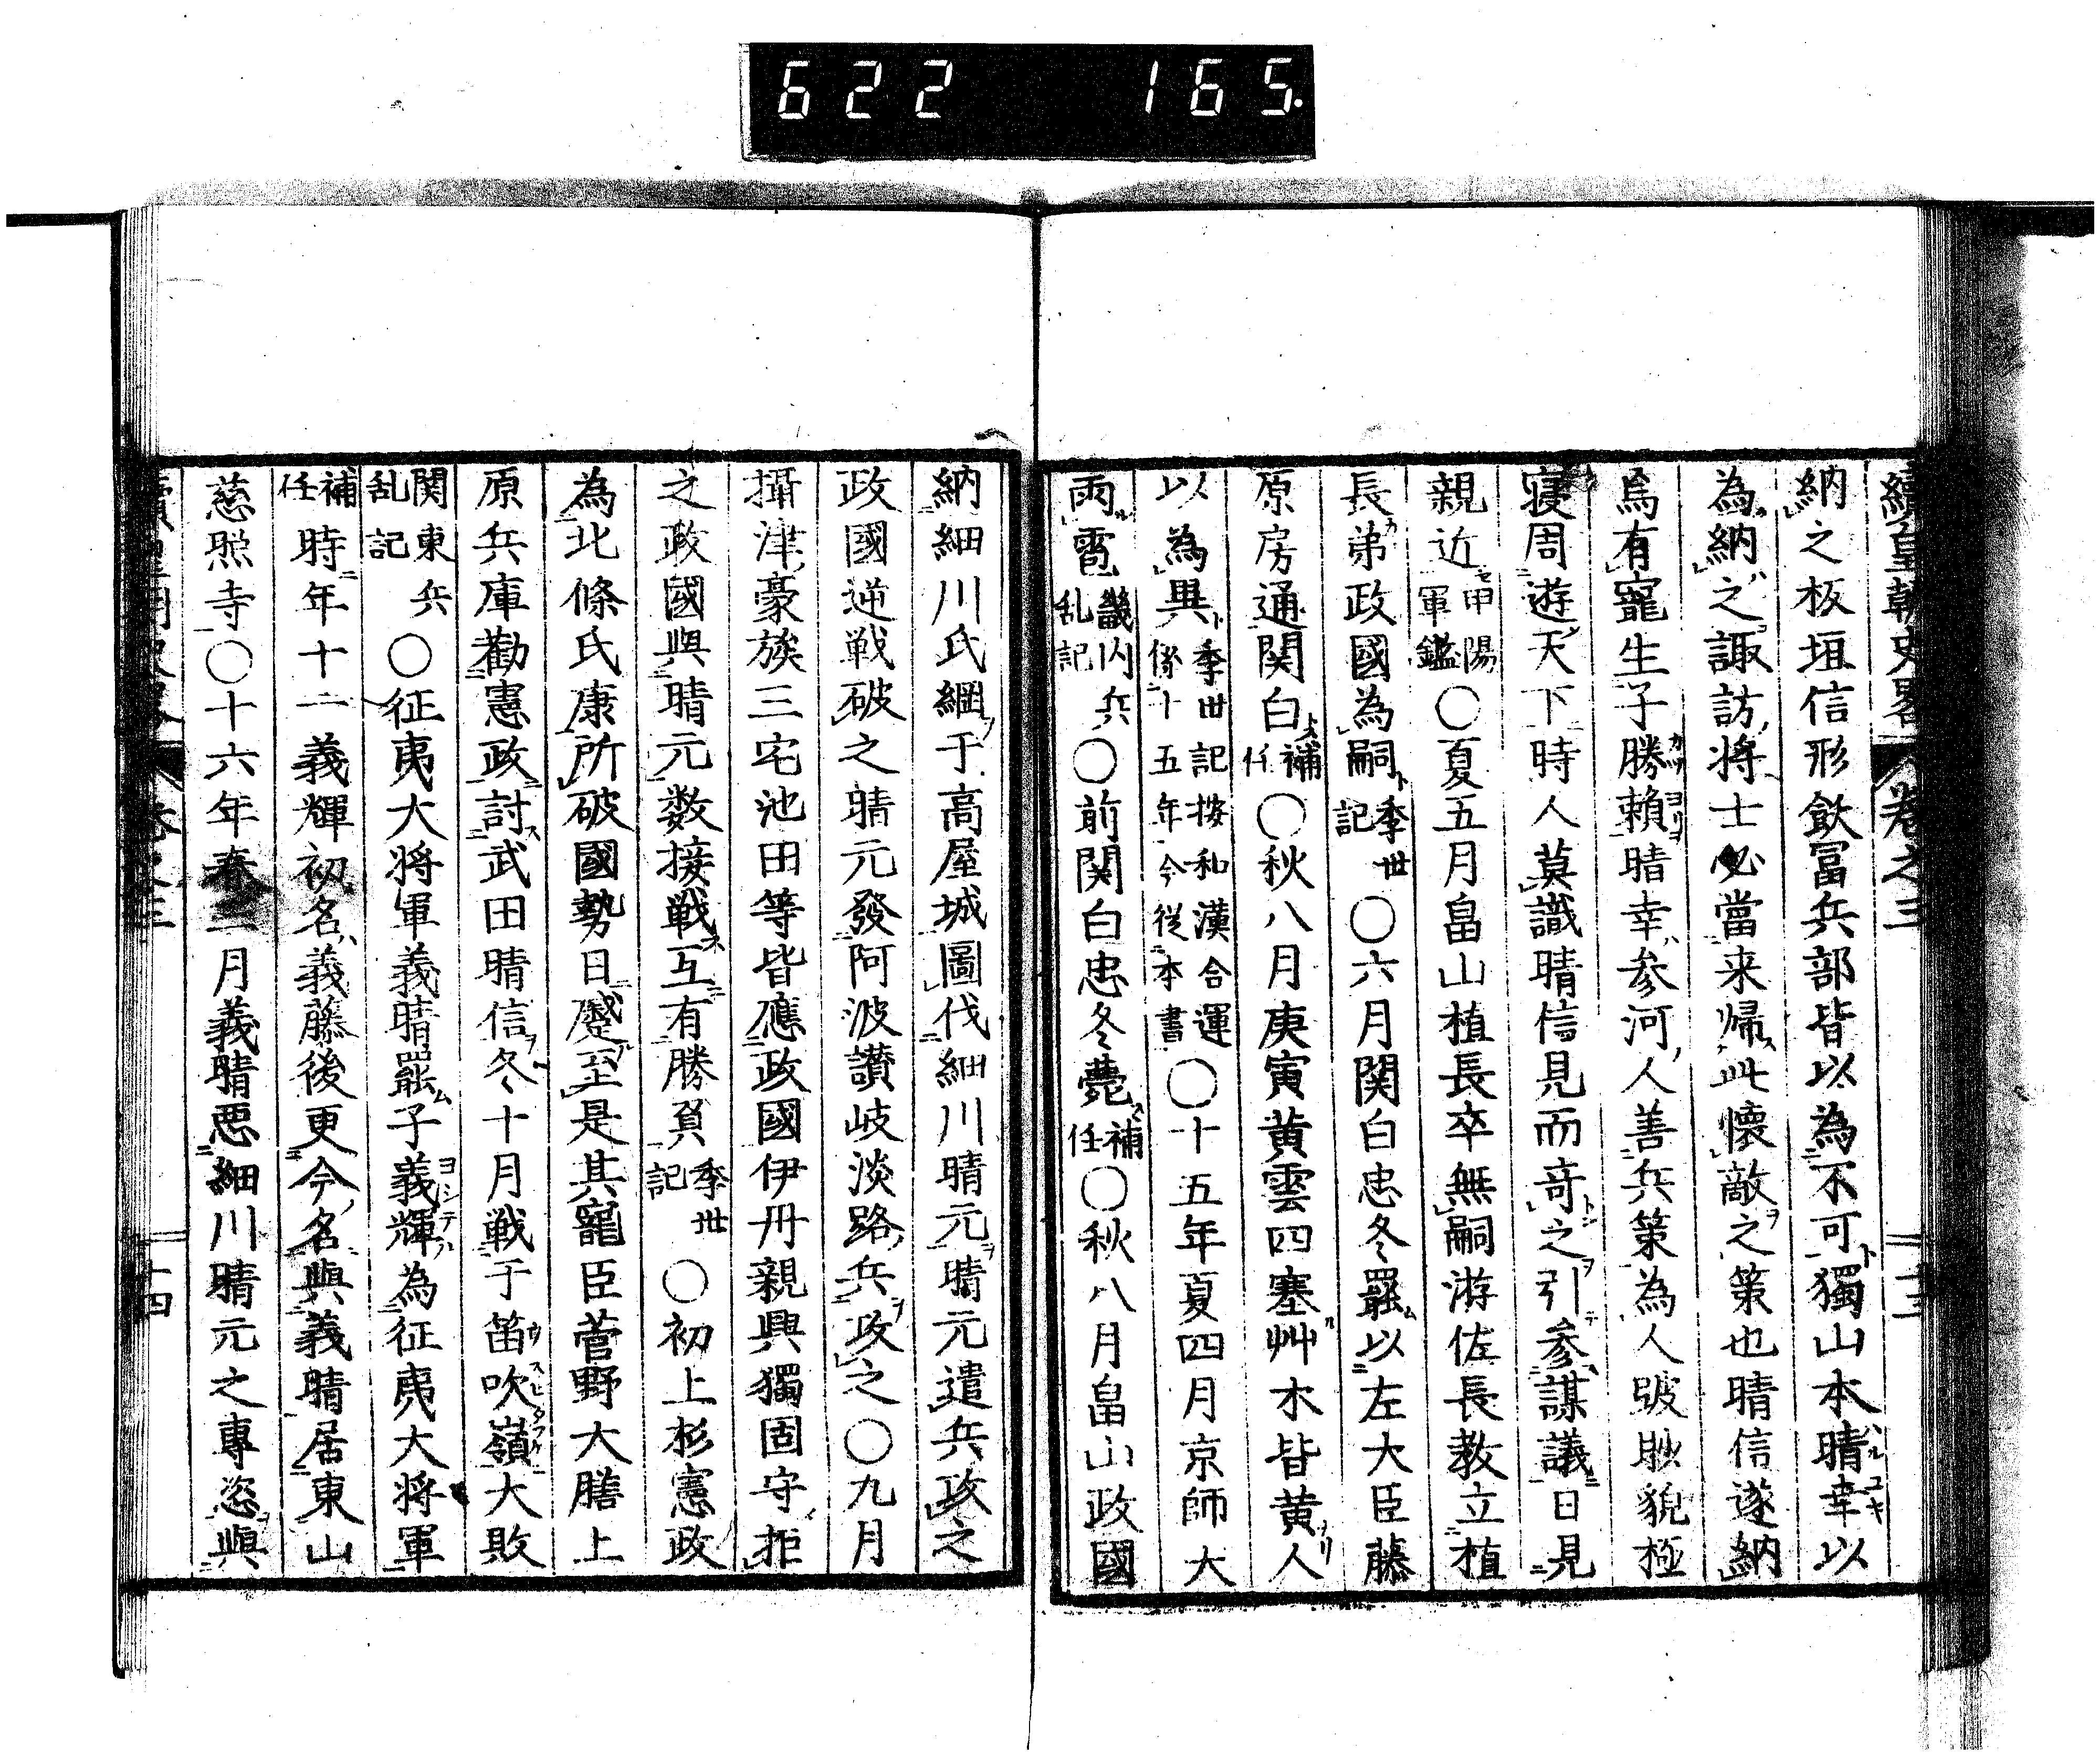 622 165.
續皇朝史畧 卷之三 十三
納之板垣信形飫冨兵部皆以為不可獨山本晴幸以
為納之諏訪將士必當来帰此懷敵之策也晴信遂納
焉有寵生子勝頼晴幸参河人善兵策為人眇貌極
寝周遊天下時人莫識晴信見而竒之引参謀議日見
親近甲陽軍鑑〇夏五月畠山植長卒無嗣游佐長教立植
長弟政國為嗣季世記〇六月関白忠冬罷以左大臣藤
原房通関白補任〇秋八月庚寅黄雲四塞艸木皆黄人
以為異季世記按和漢合運係十五年今従本書〇十五年夏四月京師大
雨雹畿内兵乱記〇前関白忠冬薨補任〇秋八月畠山政國
納細川氏綱于高屋城圖伐細川晴元晴元遣兵攻之
政國逆戦破之晴元發阿波讃岐淡路兵攻之〇九月
攝津豪族三宅池田等皆應政國伊丹親興獨固守拒
之政國與晴元数接戦互有勝負季世記〇初上杉憲政
為北條氏康所破國勢日蹙至是其寵臣菅野大膳上
原兵庫勸憲政討武田晴信冬十月戦于笛吹嶺大敗
関東兵乱記〇征夷大将軍義晴罷子義輝為征夷大将軍
補任時年十一義輝初名義藤後更今名與義晴居東山
慈照寺〇十六年春三月義晴惡細川晴元之專恣與
十四